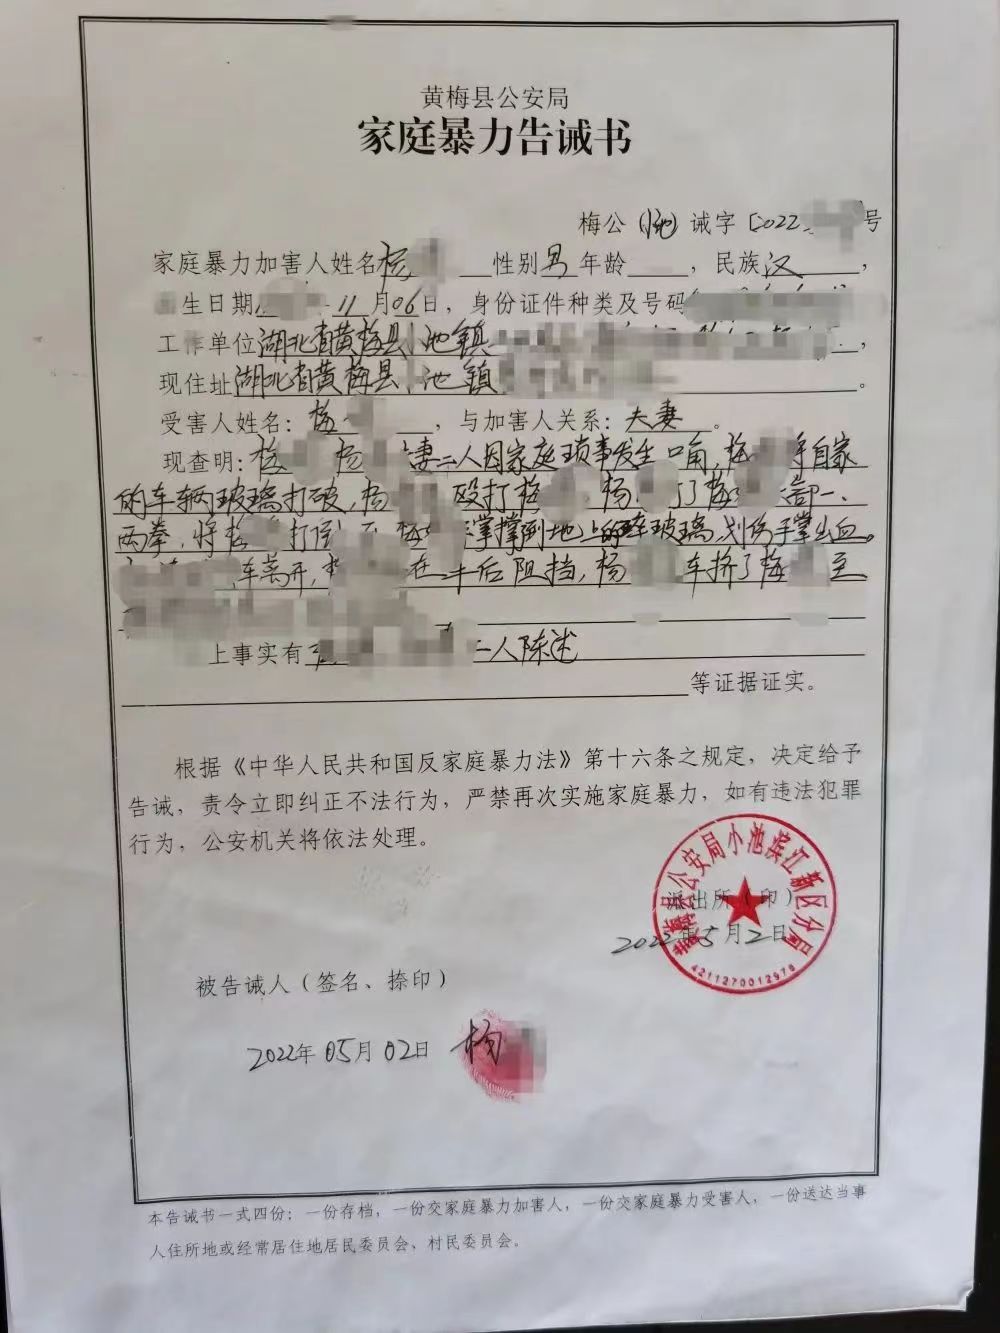 黄梅县公安局
家庭暴力告诫书
梅公（池）诫字〔2022 号
家庭暴力加害人姓名杨 性别男年龄 ，民族汉 ，
生日期 11月06日，身份证件种类及号码
工作单位湖北省黄梅县小池镇 ，
现住址湖北省黄梅县小池镇 。
受害人姓名：梅 ，与加害人关系：夫妻 。
现查明：梅 杨 妻二人因家庭琐事发生口角，梅 将自家
的车辆玻璃打破，杨 殴打梅 ，杨 打了梅 部一、
两拳，将梅 打倒 梅 手掌撑到地上的车玻璃，划伤手掌出血。
车离开，梅 在车后阻挡，杨 车挤了梅 至
上事实有 二人陈述
等证据证实。
根据《中华人民共和国反家庭暴力法》第十六条之规定，决定给予
告诫，责令立即纠正不法行为，严禁再次实施家庭暴力，如有违法犯罪
行为，公安机关将依法处理。
黄梅县公安局小池滨江新区分局
派出所（印）
2022年5月2日
4211270012978
被告诫人（签名、捺印）
2022年05月02日 杨
本告诫书一式四份；一份存档，一份交家庭暴力加害人，一份交家庭暴力受害人，一份送达当事
人住所地或经常居住地居民委员会、村民委员会。